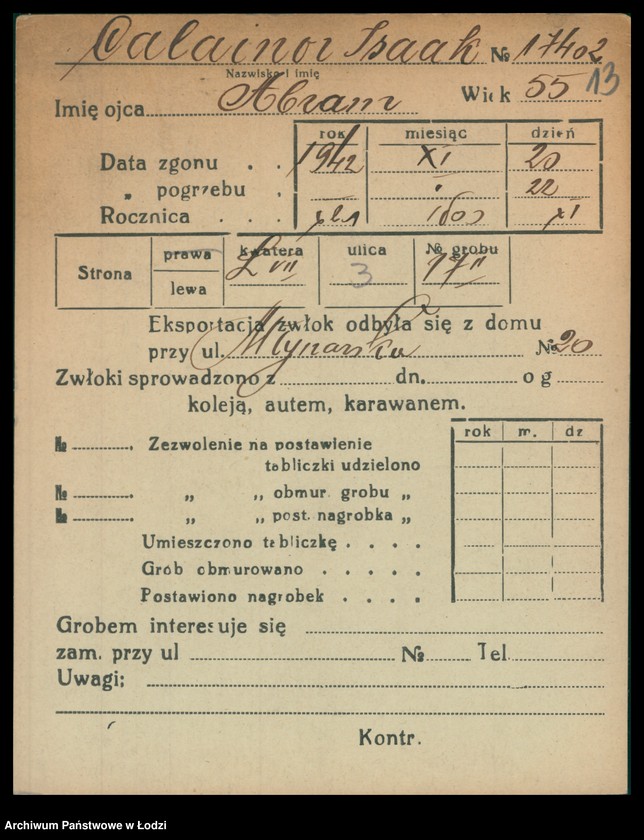 Calainor Isaak № 17402
Nazwisko i imię 13
Imię ojca Abram Wiek 55
rok miesiąc dzień
Data zgonu . . 1942 XI 20
„ pogrzebu . 22
Rocznica . . . XI
Strona prawa kwatera ulica № grobu
lewa L VII 3 17
Eksportacja zwłok odbyła się z domu
przy ul. Młynarska № 20
Zwłoki sprowadzono z dn. o g
koleją, autem, karawanem.
rok m. dz
№ Zezwolenie na postawienie
tabliczki udzielono
№ „ „ obmur. grobu „
№ „ „ post. nagrobka „
Umieszczono tabliczkę . . . .
Grób obmurowano . . . . .
Postawiono nagrobek . . . .
Grobem interesuje się
zam. przy ul № Tel.
Uwagi:
Kontr.
Archiwum Państwowe w Łodzi